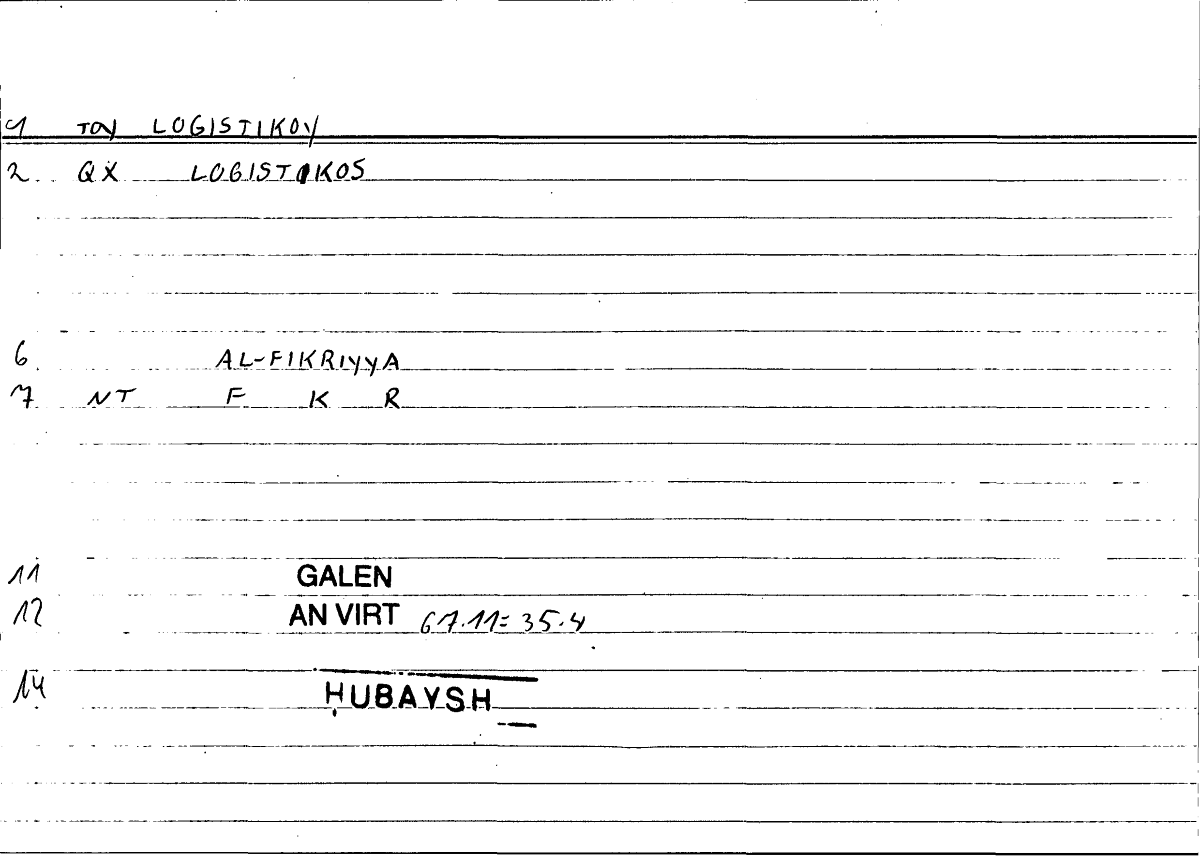 1 TOY LOGISTIKOY
2 QX LOGISTIKOS
6 AL-FIKRIYYA
7 NT F K R
11 GALEN
12 AN VIRT 67.11= 35.4
14 ḤUBAYSH